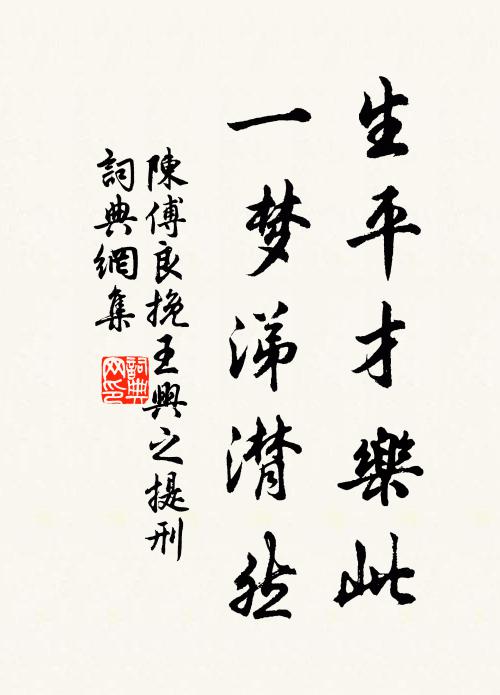 生平才樂此
一梦涕潸然
陳傅良挽王興之提刑
詞典網集
詞典网印